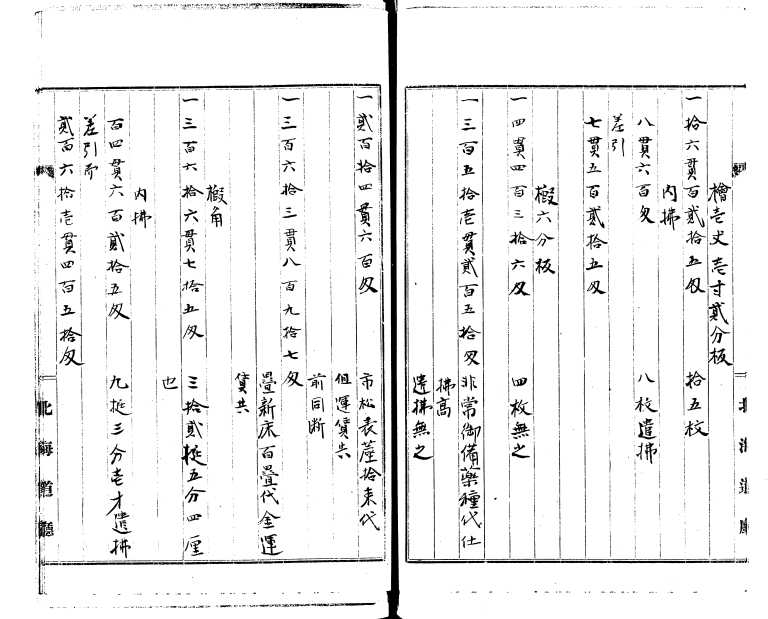 檜壱丈壱寸貳分板
一拾六貫百貳拾五匁　拾五枚
内拂
八貫六百匁　八枚遣拂
差引
七貫五百貳拾五匁
椴六分板
一四貫四百三拾六匁　四枚無之
一三百五拾壱貫貳百五拾匁　非常御備薬種代仕
拂高
遣拂無之
北海道廳
一貳百拾四貫六百匁　市松表莚拾束代
但運賃共
前同断
一三百六拾三貫八百九拾七匁　畳新床百畳代金運
賃共
椴角
一三百六拾六貫七拾五匁　三拾貳挺五分四厘
也
内拂
百四貫六百貳拾五匁　九挺三分壱才遣拂
差引而
貳百六拾壱貫四百五拾匁
北海道廳